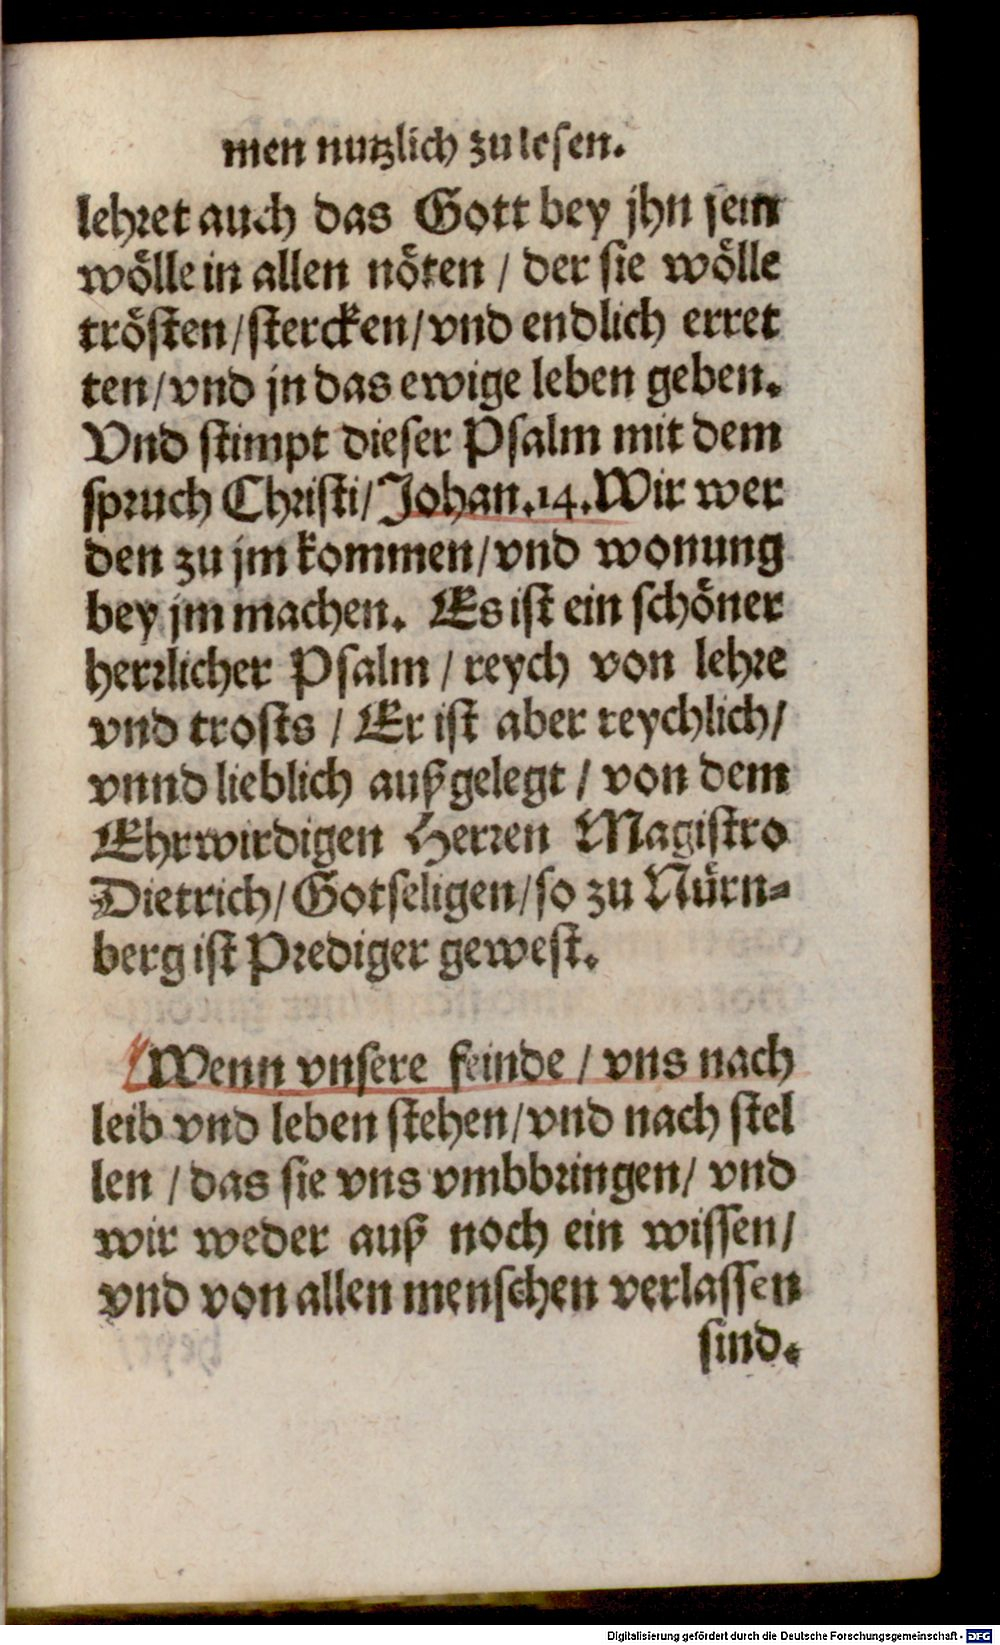 men nutzlich zu lesen.
lehret auch das Gott bey jhn sein
wölle in allen nöten / der sie wölle
trösten / stercken / vnd endlich erret
ten / vnd jn das ewige leben geben.
Vnd stimpt dieser Psalm mit dem
spruch Christi / Johan. 14. Wir wer
den zu jm kommen / vnd wonung
bey jm machen. Es ist ein schöner
herrlicher Psalm / reych von lehre
vnd trosts / Er ist aber reychlich /
vnnd lieblich außgelegt / von dem
Ehrwirdigen Herren Magistro
Dietrich / Gotseligen / so zu Nürn-
berg ist Prediger gewest.
Wenn vnsere feinde / vns nach
leib vnd leben stehen / vnd nach stel
len / das sie vns vmbbringen / vnd
wir weder auß noch ein wissen /
vnd von allen menschen verlassen
sind.
Digitalisierung gefördert durch die Deutsche Forschungsgemeinschaft - DFG